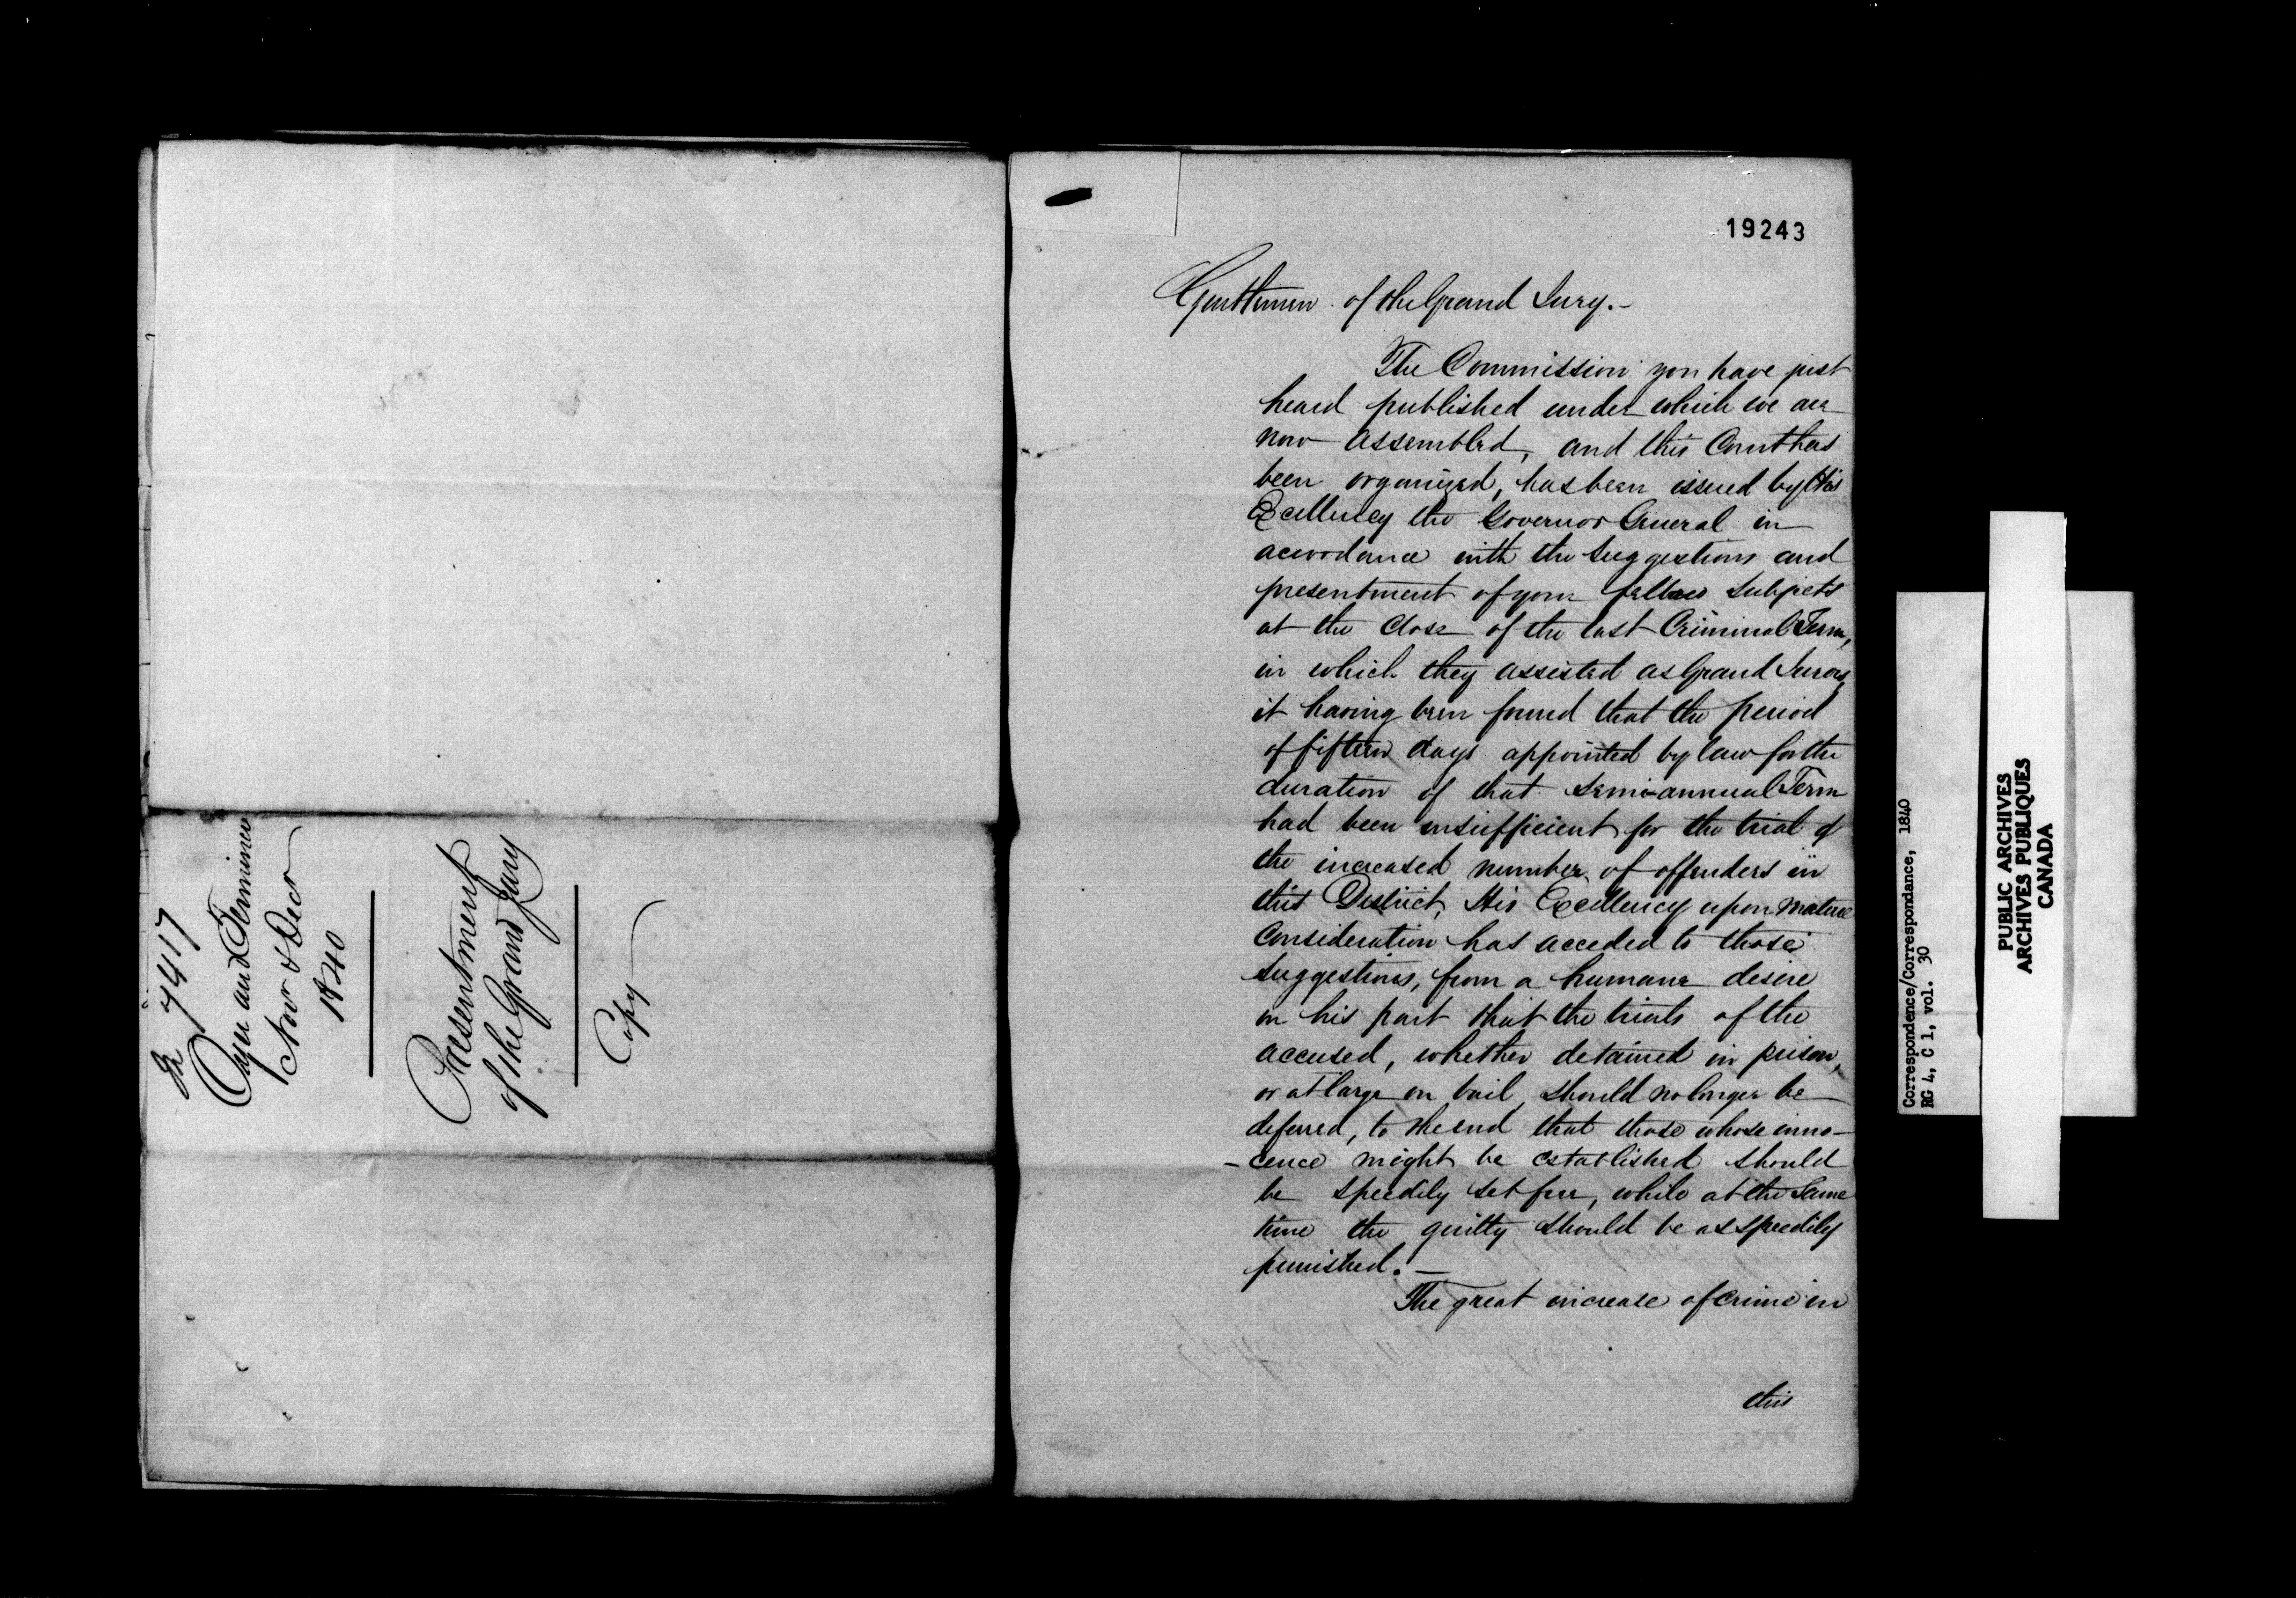 7417
Oyer and Terminer
Novr & Decr
1840
Presentment
of the Grand Jury
Copy
19243
Gentlemen of the Grand Jury.-
The Commission you have just
heard published under which we are
now assembled, and this Court has
been organized, has been issued by His
Excellency the Governor General in
accordance with the suggestions and
presentment of your fellow subjects
at the Close of the last Criminal Term,
in which they assisted as Grand Jurors,
it having been found that the period
of fifteen days appointed by law for the
duration of that semi-annual Term
had been insufficient for the trial of
the increased number of offenders in
this District, His Excellency upon mature
Consideration has acceded to those
suggestions, from a humane desire
on his part that the trials of the
accused, whether detained in prison,
or at large on bail, should no longer be
deferred, to the end that those whose inno-
-cence might be established should
be speedily set free, while at the same
time the guilty should be as speedily
punished.-
The great increase of crime in
this
Correspondence/Correspondance, 1840
RG 4, C 1, vol. 30
PUBLIC ARCHIVES
ARCHIVES PUBLIQUES
CANADA